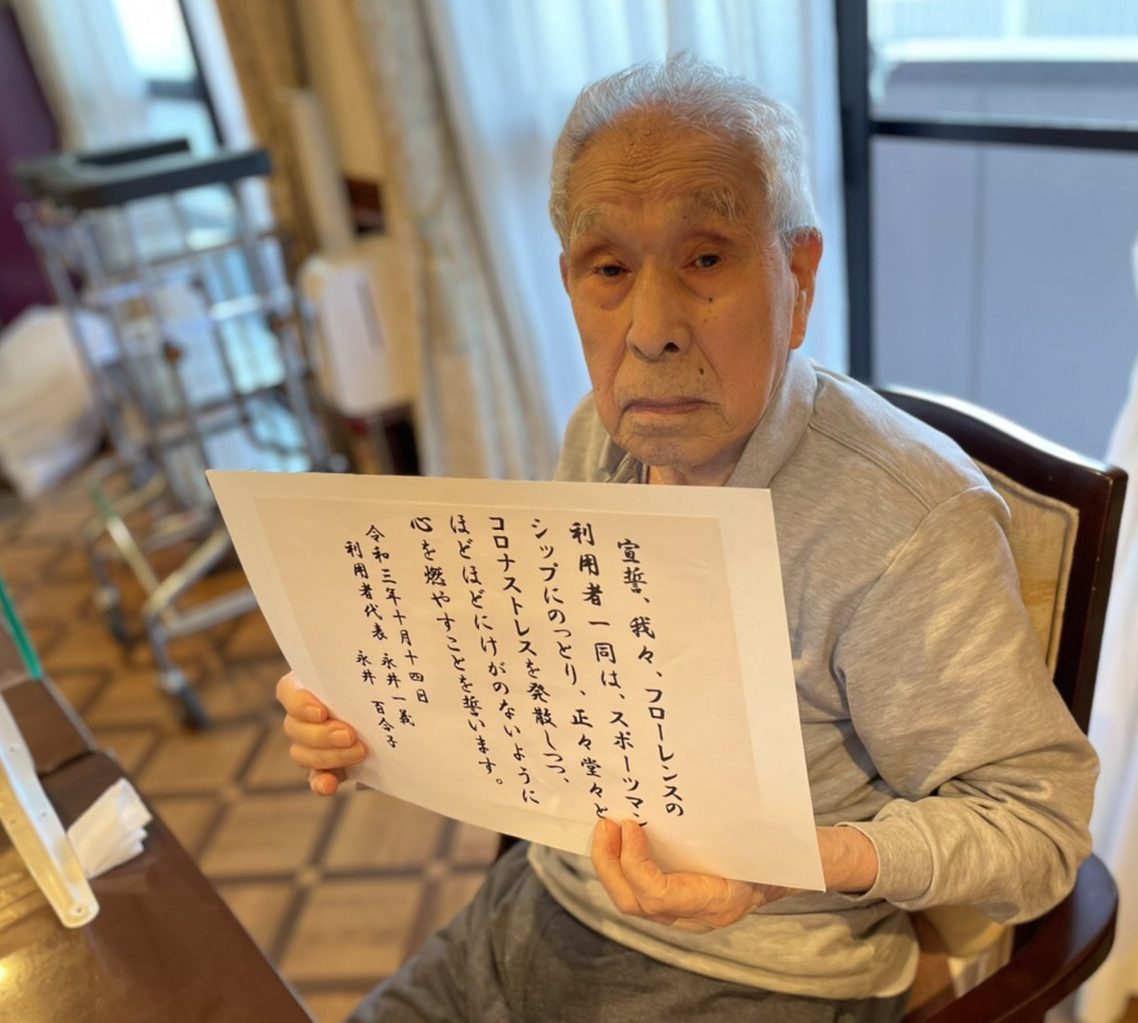 宣誓、我々、フローレンスの
利用者一同は、スポーツマン
シップにのっとり、正々堂々と
コロナストレスを発散しつつ、
ほどほどにけがのないように
心を燃やすことを誓います。
令和三年十月十四日
利用者代表 永井一義
永井 百合子